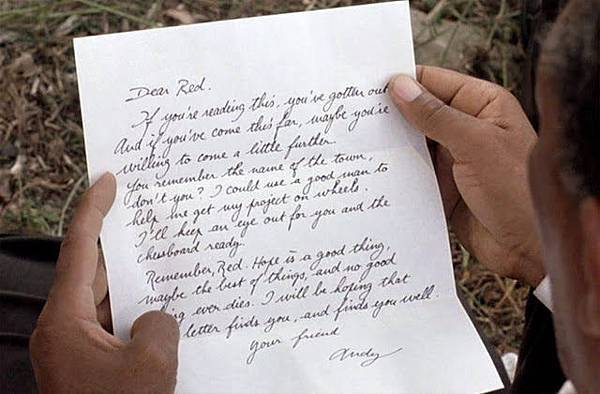 Dear Red.
If you're reading this, you've gotten out
And if you've come this far, maybe you're
willing to come a little further.
You remember the name of the town,
don't you? I could use a good man to
help me get my project on wheels.
I'll keep an eye out for you and the
chessboard ready.
Remember, Red. Hope is a good thing,
maybe the best of things, and no good
ing ever dies. I will be hoping that
letter finds you, and finds you well.
Your friend
Andy